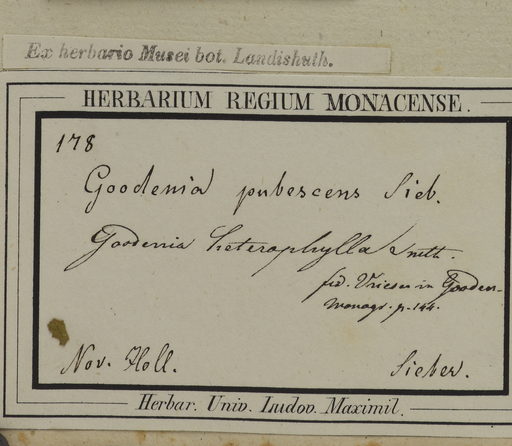 Ex herbario Musei bot. Landishuth.
HERBARIUM REGIUM MONACENSE.
178
Goodenia pubescens Sieb.
Goodenia heterophylla Smith.
fid. Vriese in Gooden.
monogr. p. 144.
Nov. Holl.
Sieber.
Herbar. Univ. Ludov. Maximil.